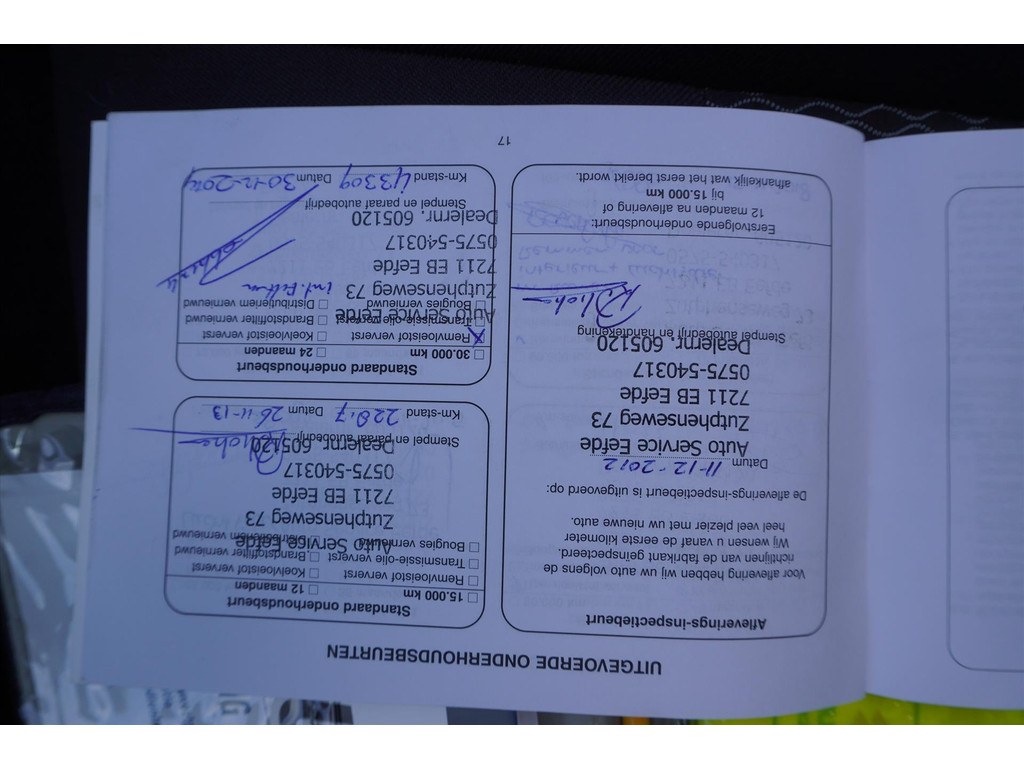 UITGEVOERDE ONDERHOUDSBEURTEN
Afleverings-inspectiebeurt
Voor aflevering hebben wij uw auto volgens de
richtlijnen van de fabrikant geïnspecteerd.
Wij wensen u vanaf de eerste kilometer
heel veel plezier met uw nieuwe auto.
De afleverings-inspectiebeurt is uitgevoerd op:
Datum 11-12-2012
Auto Service Eefde
Zutphenseweg 73
7211 EB Eefde
0575-540317
Dealernr. 605120
Stempel autobedrijf en handtekening
Eerstvolgende onderhoudsbeurt:
12 maanden na aflevering of
bij 15.000 km
afhankelijk wat het eerst bereikt wordt.
Standaard onderhoudsbeurt
15.000 km 12 maanden
Remvloeistof ververst Koelvloeistof ververst
Transmissie-olie ververst Brandstoffilter vernieuwd
Bougies vernieuwd Distributieriem vernieuwd
Auto Service Eefde
Zutphenseweg 73
7211 EB Eefde
0575-540317
Dealernr. 605120
Stempel en paraaf autobedrijf
Km-stand Datum 26-11-13
Standaard onderhoudsbeurt
30.000 km 24 maanden
Remvloeistof ververst Koelvloeistof ververst
Transmissie-olie ververst Brandstoffilter vernieuwd
Bougies vernieuwd Distributieriem vernieuwd
Auto Service Eefde
Zutphenseweg 73
7211 EB Eefde
0575-540317
Dealernr. 605120
Stempel en paraaf autobedrijf
Km-stand 43309 Datum 30-12-2014
17